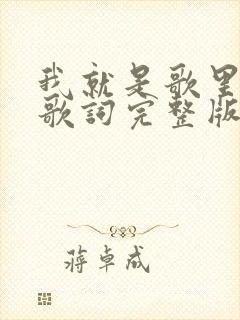 我就是歌里
歌詞完整版
蔣卓成